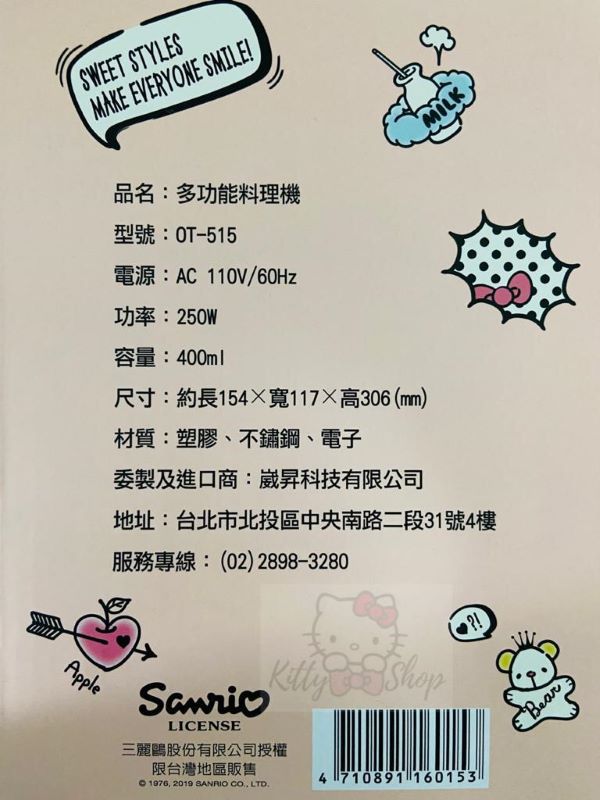 SWEET STYLES
MAKE EVERYONE SMILE!
MILK
品名：多功能料理機
型號：OT-515
電源：AC 110V/60Hz
功率：250W
容量：400ml
尺寸：約長154×寬117×高306(mm)
材質：塑膠、不鏽鋼、電子
委製及進口商：崴昇科技有限公司
地址：台北市北投區中央南路二段31號4樓
服務專線：(02)2898-3280
?!
Apple
Kitty Shop
Bear
Sanrio
LICENSE
三麗鷗股份有限公司授權
限台灣地區販售
© 1976, 2019 SANRIO CO., LTD.
4 710891 160153